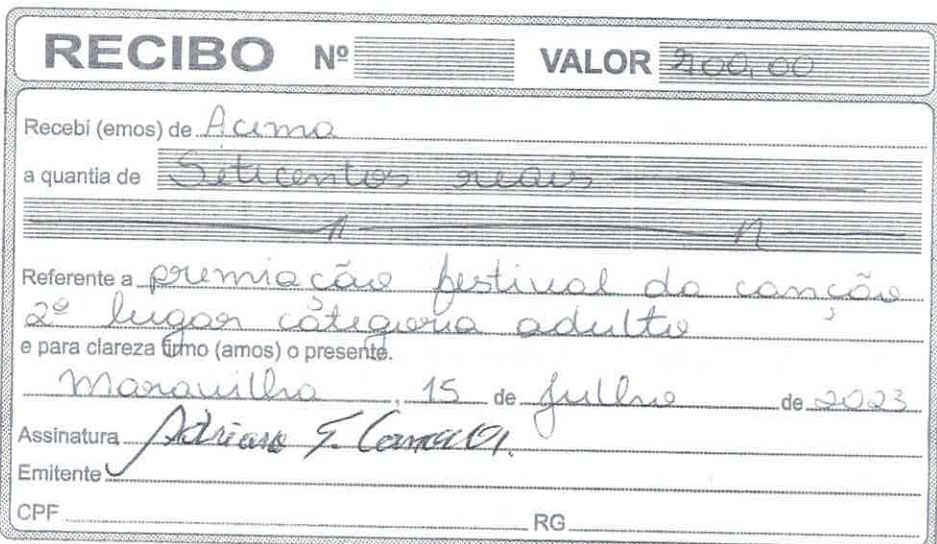 RECIBO Nº VALOR 700,00
Recebi (emos) de Acima
a quantia de Seticentos reais
Referente a premiação festival da canção
2º lugar categoria adulto
e para clareza firmo (amos) o presente.
Maravilha, 15 de Julho de 2023
Assinatura Adriano
Emitente
CPF RG